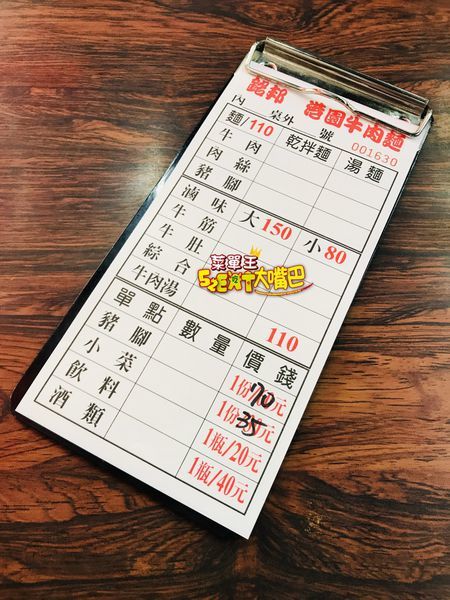 港園牛肉麵
內 桌外 號
001630
麵/110 乾拌麵 湯麵
牛肉
肉絲
豬腳
滷味 大150 小80
牛筋
牛肚
綜合
牛肉湯 110
菜單王
53EAT大嘴巴
單點 數量 價錢
豬腳 1份 70元
小菜 1份 35元
飲料 1瓶/20元
酒類 1瓶/40元